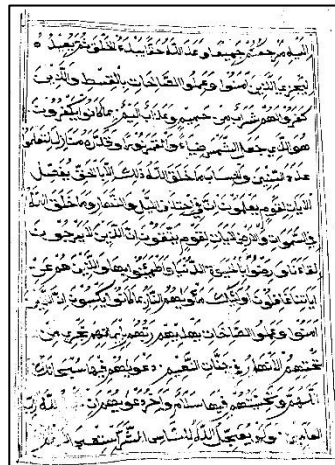 اليه مرجعكم جميعا وعد الله حقا انه يبدؤ الخلق ثم يعيده
ليجزي الذين امنوا وعملوا الصالحات بالقسط والذين
كفروا لهم شراب من حميم وعذاب اليم بما كانوا يكفرون
هو الذي جعل الشمس ضياء والقمر نورا وقدره منازل لتعلموا
عدد السنين والحساب ما خلق الله ذلك الا بالحق يفصل
الايات لقوم يعلمون ان في اختلاف الليل والنهار وما خلق الله
في السموات والارض لايات لقوم يتقون ان الذين لا يرجون
لقاءنا ورضوا بالحيوة الدنيا واطمانوا بها والذين هم عن
اياتنا غافلون اولئك ماويهم النار بما كانوا يكسبون ان الذين
امنوا وعملوا الصالحات يهديهم ربهم بايمانهم تجري من
تحتهم الانهار في جنات النعيم دعويهم فيها سبحانك
اللهم وتحيتهم فيها سلام واخر دعويهم ان الحمد لله رب
العالمين ولو يعجل الله للناس الشر استعجالهم